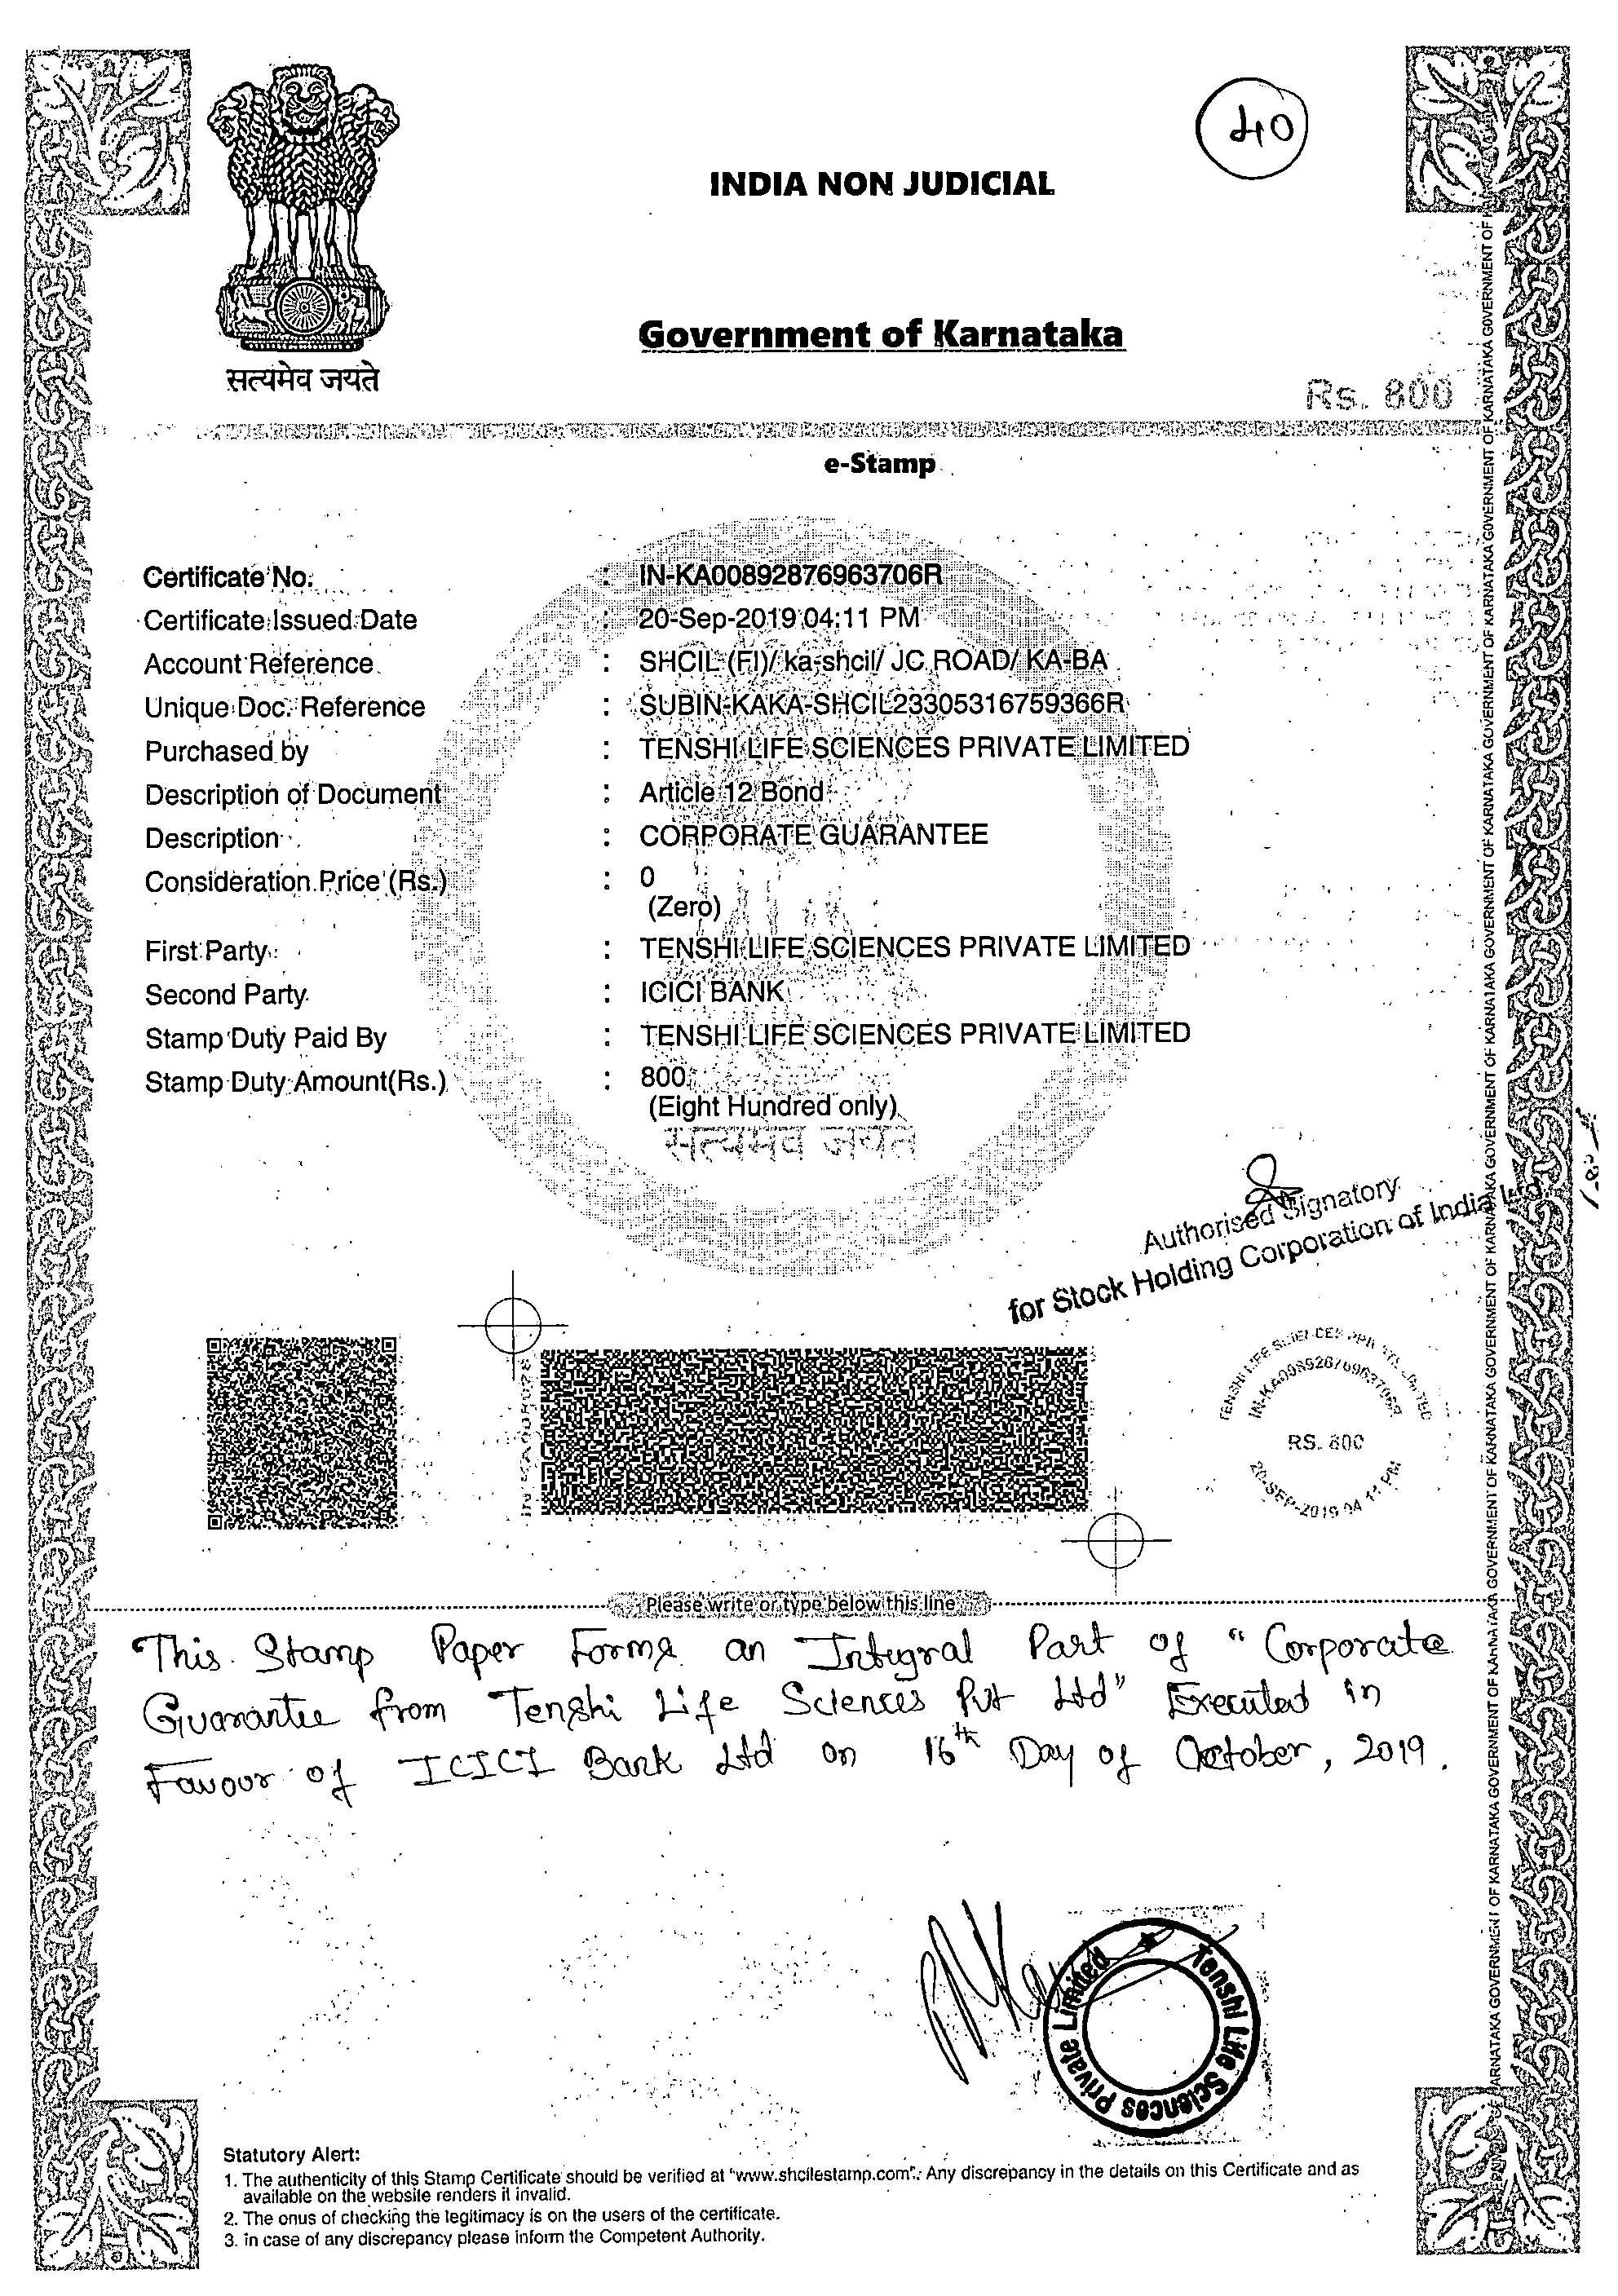 40
INDIA NON JUDICIAL
Government of Karnataka
सत्यमेव जयते
Rs. 800
e-Stamp
Certificate No. : IN-KA00892876963706R
Certificate Issued Date : 20-Sep-2019 04:11 PM
Account Reference : SHCIL (FI)/ ka-shcil/ JC ROAD/ KA-BA
Unique Doc. Reference : SUBIN-KAKA-SHCIL23305316759366R
Purchased by : TENSHI LIFE SCIENCES PRIVATE LIMITED
Description of Document : Article 12 Bond
Description : CORPORATE GUARANTEE
Consideration Price (Rs.) : 0
(Zero)
First Party : TENSHI LIFE SCIENCES PRIVATE LIMITED
Second Party : ICICI BANK
Stamp Duty Paid By : TENSHI LIFE SCIENCES PRIVATE LIMITED
Stamp Duty Amount(Rs.) : 800
(Eight Hundred only)
सत्यमेव जयते
Authorised Signatory
for Stock Holding Corporation of India Ltd.
RS. 800
20-SEP-2019 04 11 PM
Please write or type below this line
This Stamp Paper Forms an Integral Part of "Corporate
Guarantee from Tenshi Life Sciences Pvt Ltd" Executed in
Favour of ICICI Bank Ltd on 16th Day of October, 2019.
Tenshi Life Sciences Private Limited
Statutory Alert:
1. The authenticity of this Stamp Certificate should be verified at "www.shcilestamp.com". Any discrepancy in the details on this Certificate and as
available on the website renders it invalid.
2. The onus of checking the legitimacy is on the users of the certificate.
3. In case of any discrepancy please inform the Competent Authority.